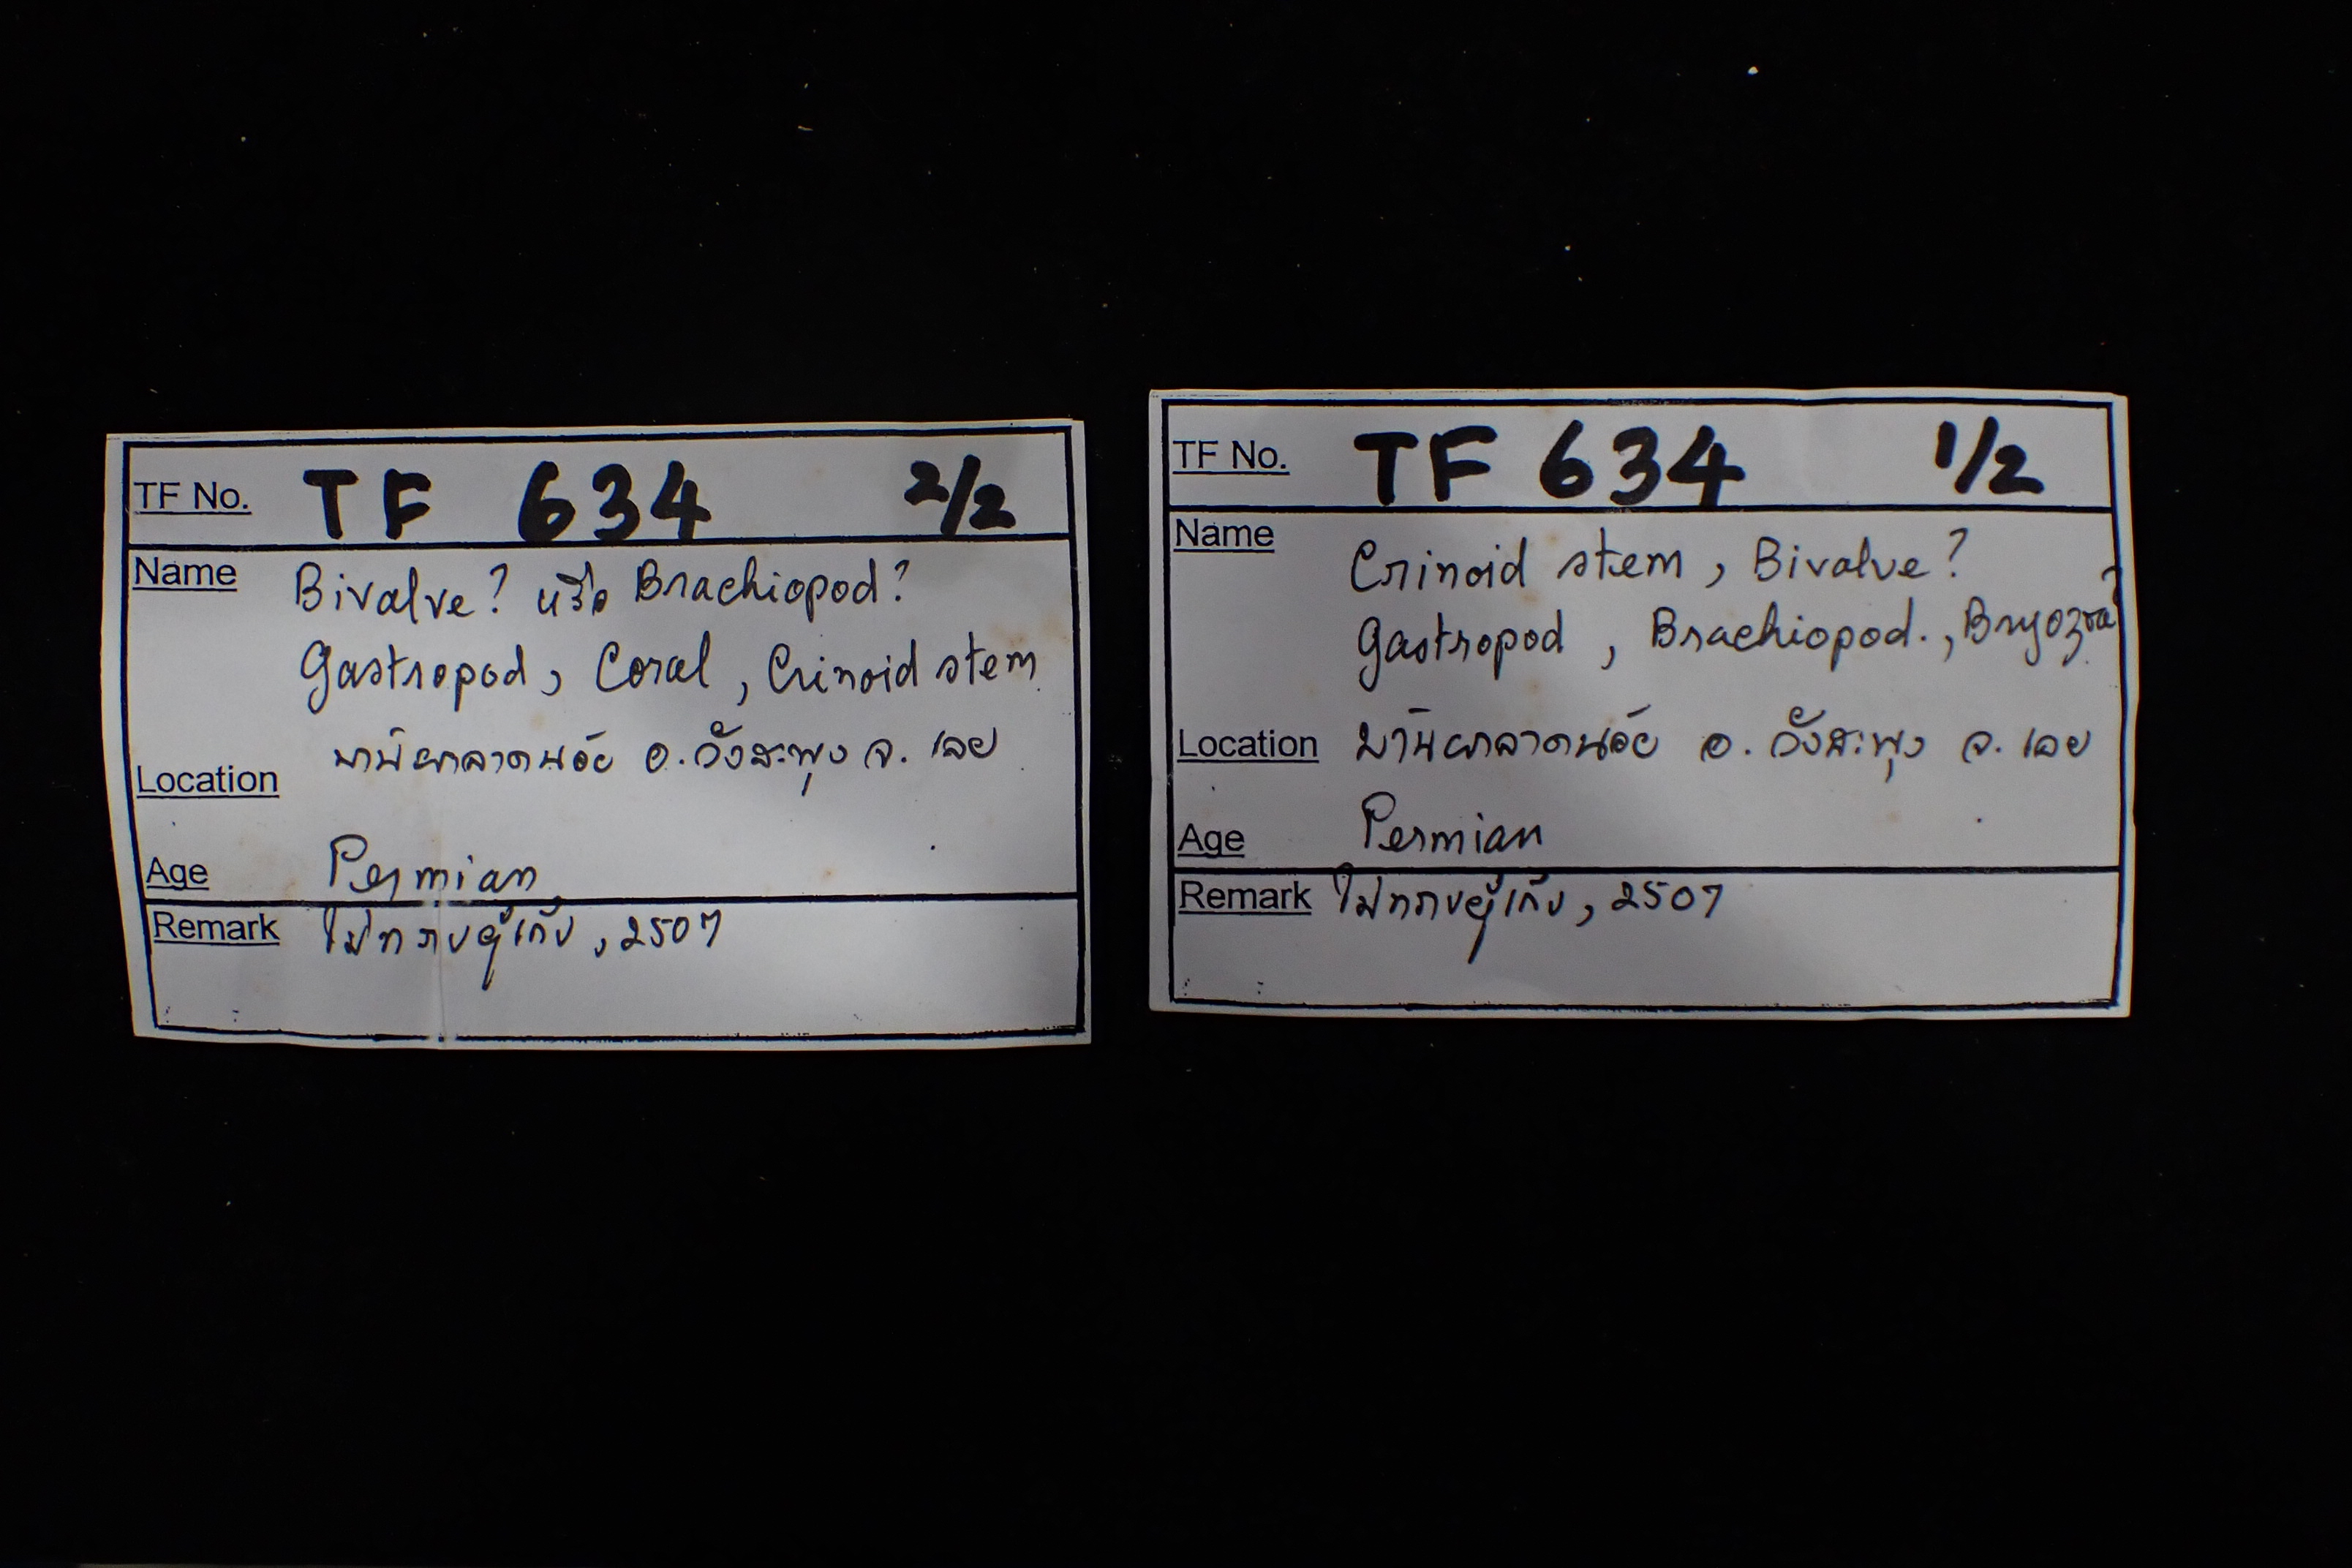 TF No. TF 634 2/2
Name Bivalve? หรือ Brachiopod?
Gastropod, Coral, Crinoid stem
Location บ้านผาลาดน้อย อ.วังสะพุง จ. เลย
Age Permian
Remark ไม่ทราบผู้เก็บ, 2507
TF No. TF 634 1/2
Name Crinoid stem, Bivalve?
Gastropod, Brachiopod., Bryozoa?
Location บ้านผาลาดน้อย อ. วังสะพุง จ. เลย
Age Permian
Remark ไม่ทราบผู้เก็บ, 2507